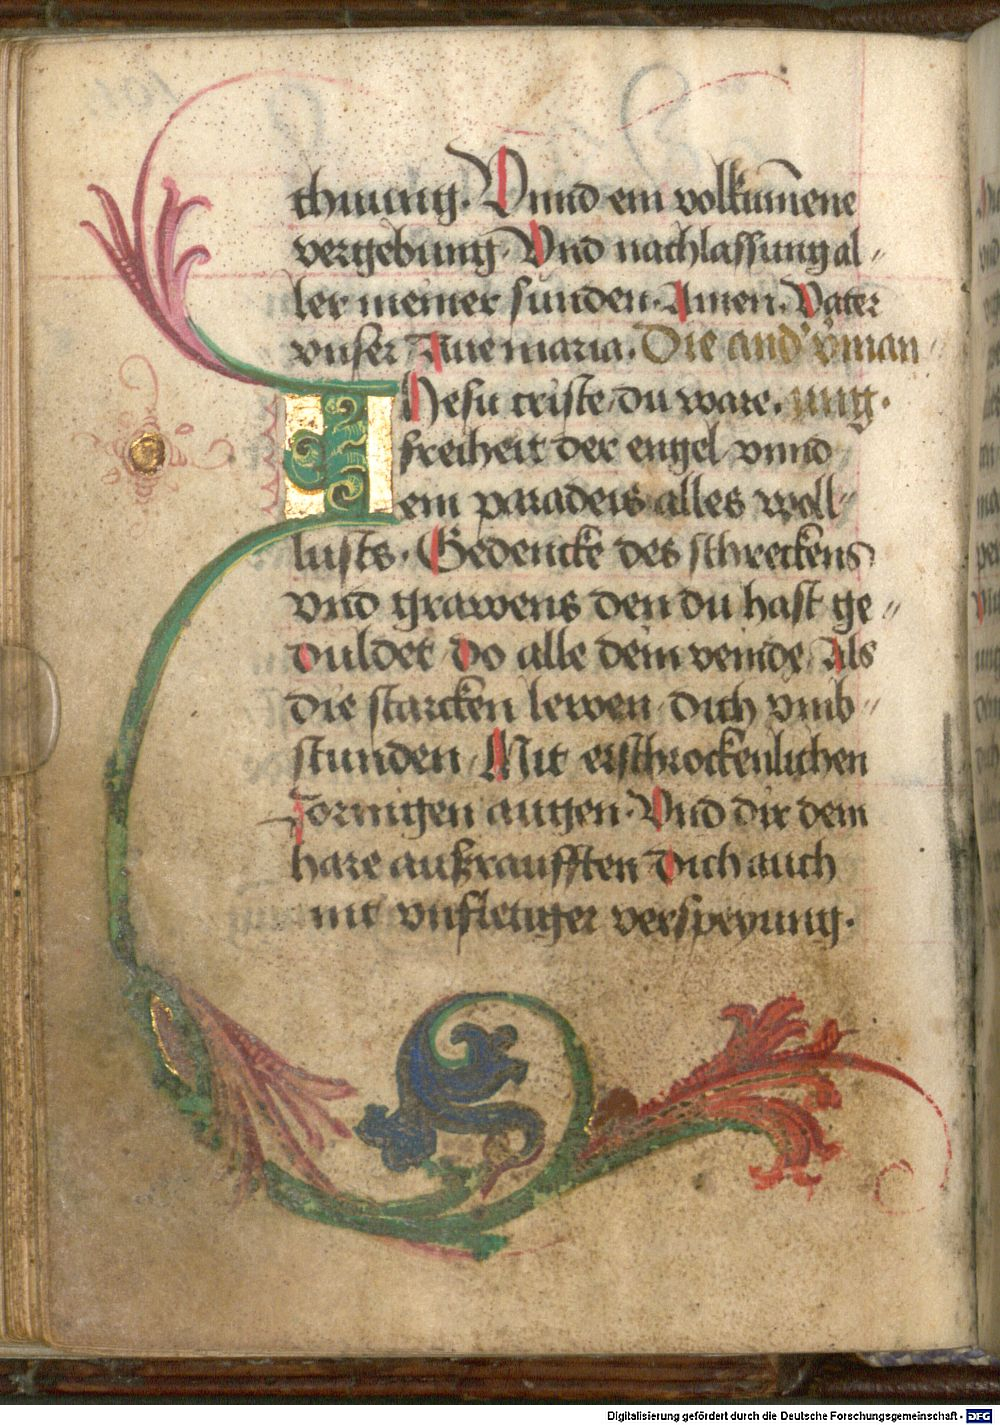 chuung. Vnnd ein volkum̄ene
vergebung. Vnd nachlassung al„
ler meiner sunden. Amen. Vater
vnser Aue maria. Die and' v̈man
IHesu criste du ware. ung.
freiheit der engel vnnd
ein paradeis alles woll„
lusts. Gedencke des schreckens
vnd grawens den du hast ge„
duldet do alle dein veinde Als
die starcken lewen dich vmb„
stunden Mit erschrockenlichen
zornigen augen. Vnd dir dein
hare außraufften Dich auch
mit vnfletiger verspeyung.
Digitalisierung gefördert durch die Deutsche Forschungsgemeinschaft - DFG